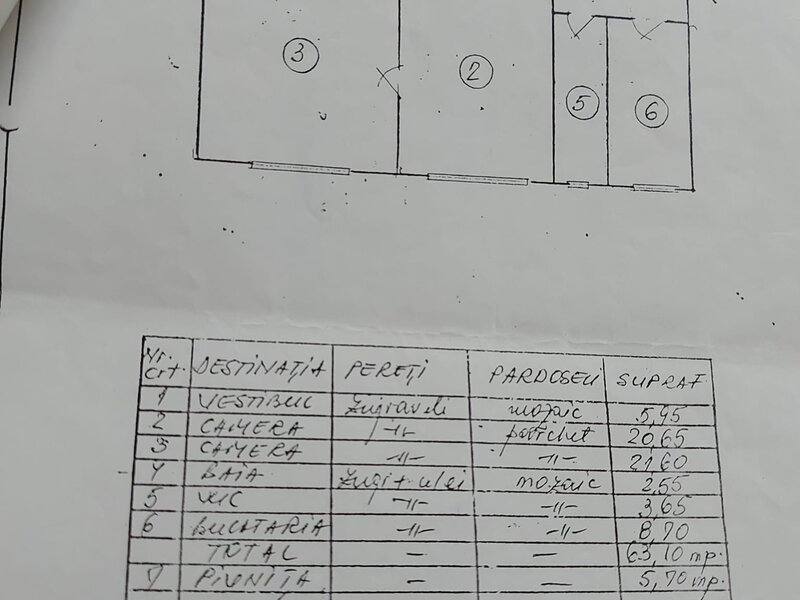 3
2
5
6
Nr. crt. DESTINAȚIA PEREȚI PARDOSELI SUPRAF
1 VESTIBUL zugraveli mozaic 5,95
2 CAMERA -//- parchet 20,65
3 CAMERA -//- -//- 21,60
4 BAIA zugr+ulei mozaic 2,55
5 WC -//- -//- 3,65
6 BUCATARIA -//- -//- 8,70
TOTAL — — 63,10 mp.
7 PIVNIȚA — — 5,70 mp.